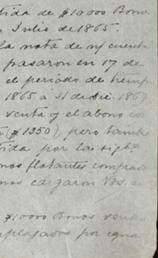 tida de $10000 Bono
Julio de 1865.
la nota de my cuenta
pasaron en 17 de
el periodo de tiemp
1865 a 31 de Dic. 1869
venta y el abono co
$1350), pero tamb
tida por las sig
nos flotantes comprad
mos cargaron Vds. e
$10000 Bonos vend
mplazados por igua